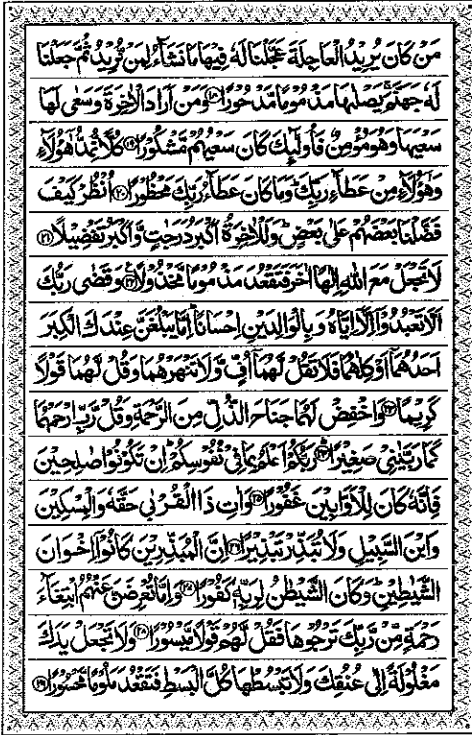 مَنْ كَانَ يُرِيْدُ الْعَاجِلَةَ عَجَّلْنَا لَهٗ فِيْهَا مَا نَشَآءُ لِمَنْ نُّرِيْدُ ثُمَّ جَعَلْنَا
لَهٗ جَهَنَّمَ ۚ يَصْلٰىهَا مَذْمُوْمًا مَّدْحُوْرًا ﴿۱۸﴾ وَمَنْ اَرَادَ الْاٰخِرَةَ وَسَعٰى لَهَا
سَعْيَهَا وَهُوَ مُؤْمِنٌ فَاُولٰٓئِكَ كَانَ سَعْيُهُمْ مَّشْكُوْرًا ﴿۱۹﴾ كُلًّا نُّمِدُّ هٰٓؤُلَآءِ
وَهٰٓؤُلَآءِ مِنْ عَطَآءِ رَبِّكَ ؕ وَمَا كَانَ عَطَآءُ رَبِّكَ مَحْظُوْرًا ﴿۲۰﴾ اُنْظُرْ كَيْفَ
فَضَّلْنَا بَعْضَهُمْ عَلٰى بَعْضٍ ؕ وَلَلْاٰخِرَةُ اَكْبَرُ دَرَجٰتٍ وَّاَكْبَرُ تَفْضِيْلًا ﴿۲۱﴾
لَا تَجْعَلْ مَعَ اللّٰهِ اِلٰهًا اٰخَرَ فَتَقْعُدَ مَذْمُوْمًا مَّخْذُوْلًا ﴿۲۲﴾ وَقَضٰى رَبُّكَ
اَلَّا تَعْبُدُوْۤا اِلَّاۤ اِيَّاهُ وَبِالْوَالِدَيْنِ اِحْسَانًا ؕ اِمَّا يَبْلُغَنَّ عِنْدَكَ الْكِبَرَ
اَحَدُهُمَاۤ اَوْ كِلٰهُمَا فَلَا تَقُلْ لَّهُمَاۤ اُفٍّ وَّلَا تَنْهَرْهُمَا وَقُلْ لَّهُمَا قَوْلًا
كَرِيْمًا ﴿۲۳﴾ وَاخْفِضْ لَهُمَا جَنَاحَ الذُّلِّ مِنَ الرَّحْمَةِ وَقُلْ رَّبِّ ارْحَمْهُمَا
كَمَا رَبَّيٰنِيْ صَغِيْرًا ﴿۲۴﴾ رَبُّكُمْ اَعْلَمُ بِمَا فِيْ نُفُوْسِكُمْ ؕ اِنْ تَكُوْنُوْا صٰلِحِيْنَ
فَاِنَّهٗ كَانَ لِلْاَوَّابِيْنَ غَفُوْرًا ﴿۲۵﴾ وَاٰتِ ذَا الْقُرْبٰى حَقَّهٗ وَالْمِسْكِيْنَ
وَابْنَ السَّبِيْلِ وَلَا تُبَذِّرْ تَبْذِيْرًا ﴿۲۶﴾ اِنَّ الْمُبَذِّرِيْنَ كَانُوْۤا اِخْوَانَ
الشَّيٰطِيْنِ ؕ وَكَانَ الشَّيْطٰنُ لِرَبِّهٖ كَفُوْرًا ﴿۲۷﴾ وَاِمَّا تُعْرِضَنَّ عَنْهُمُ ابْتِغَآءَ
رَحْمَةٍ مِّنْ رَّبِّكَ تَرْجُوْهَا فَقُلْ لَّهُمْ قَوْلًا مَّيْسُوْرًا ﴿۲۸﴾ وَلَا تَجْعَلْ يَدَكَ
مَغْلُوْلَةً اِلٰى عُنُقِكَ وَلَا تَبْسُطْهَا كُلَّ الْبَسْطِ فَتَقْعُدَ مَلُوْمًا مَّحْسُوْرًا ﴿۲۹﴾